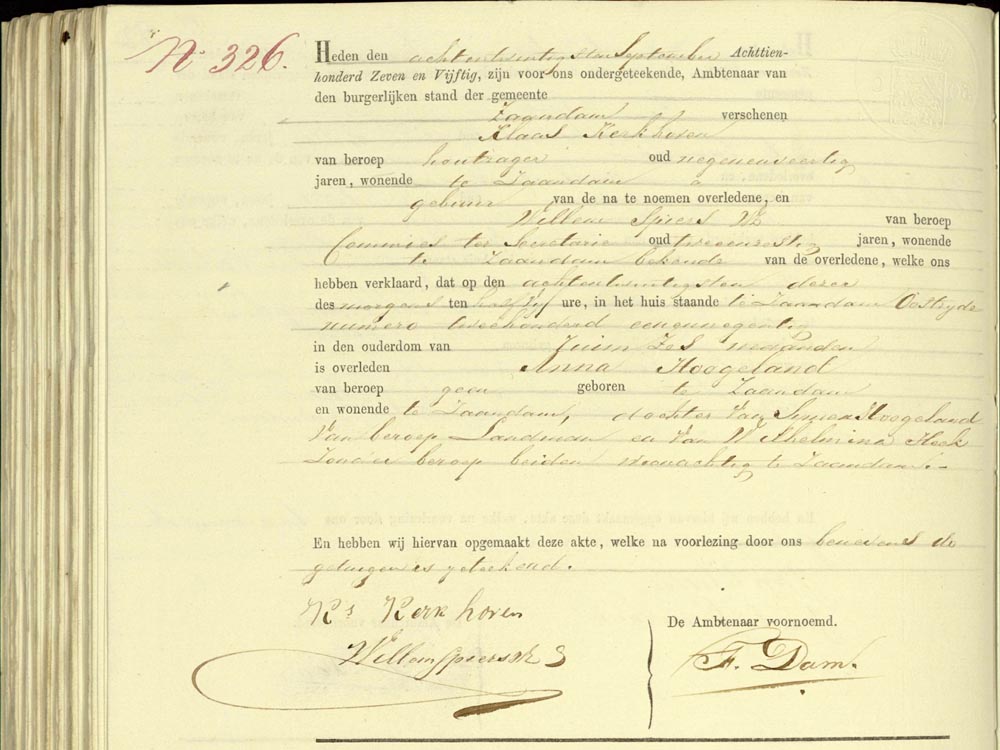 No 326.
Heden den achtentwintigsten September Achttien-
honderd Zeven en Vijftig, zijn voor ons ondergeteekende, Ambtenaar van
den burgerlijken stand der gemeente
Zaandam verschenen
Klaas Kerkhoven
van beroep houtzager oud negenenveertig
jaren, wonende te Zaandam
gebuur van de na te noemen overledene, en
Willem Spiers van beroep
Commies ter Secretarie oud tweeenzestig jaren, wonende
te Zaandam bekende van de overledene, welke ons
hebben verklaard, dat op den achtentwintigsten dezer
des morgens ten half vyf ure, in het huis staande te Zaandam Oostzyde
numero tweehonderd eenennegentig
in den ouderdom van ruim zes maanden
is overleden Anna Hoogeland
van beroep geen geboren te Zaandam
en wonende te Zaandam, dochter van Simon Hoogeland
van beroep Landman en van Wilhelmina
Zonder beroep beiden woonachtig te Zaandam.
En hebben wij hiervan opgemaakt deze akte, welke na voorlezing door ons benevens de
getuigen is geteekend.
Ks Kerkhoven
Willem Spiers
De Ambtenaar voornoemd.
F. Dam.